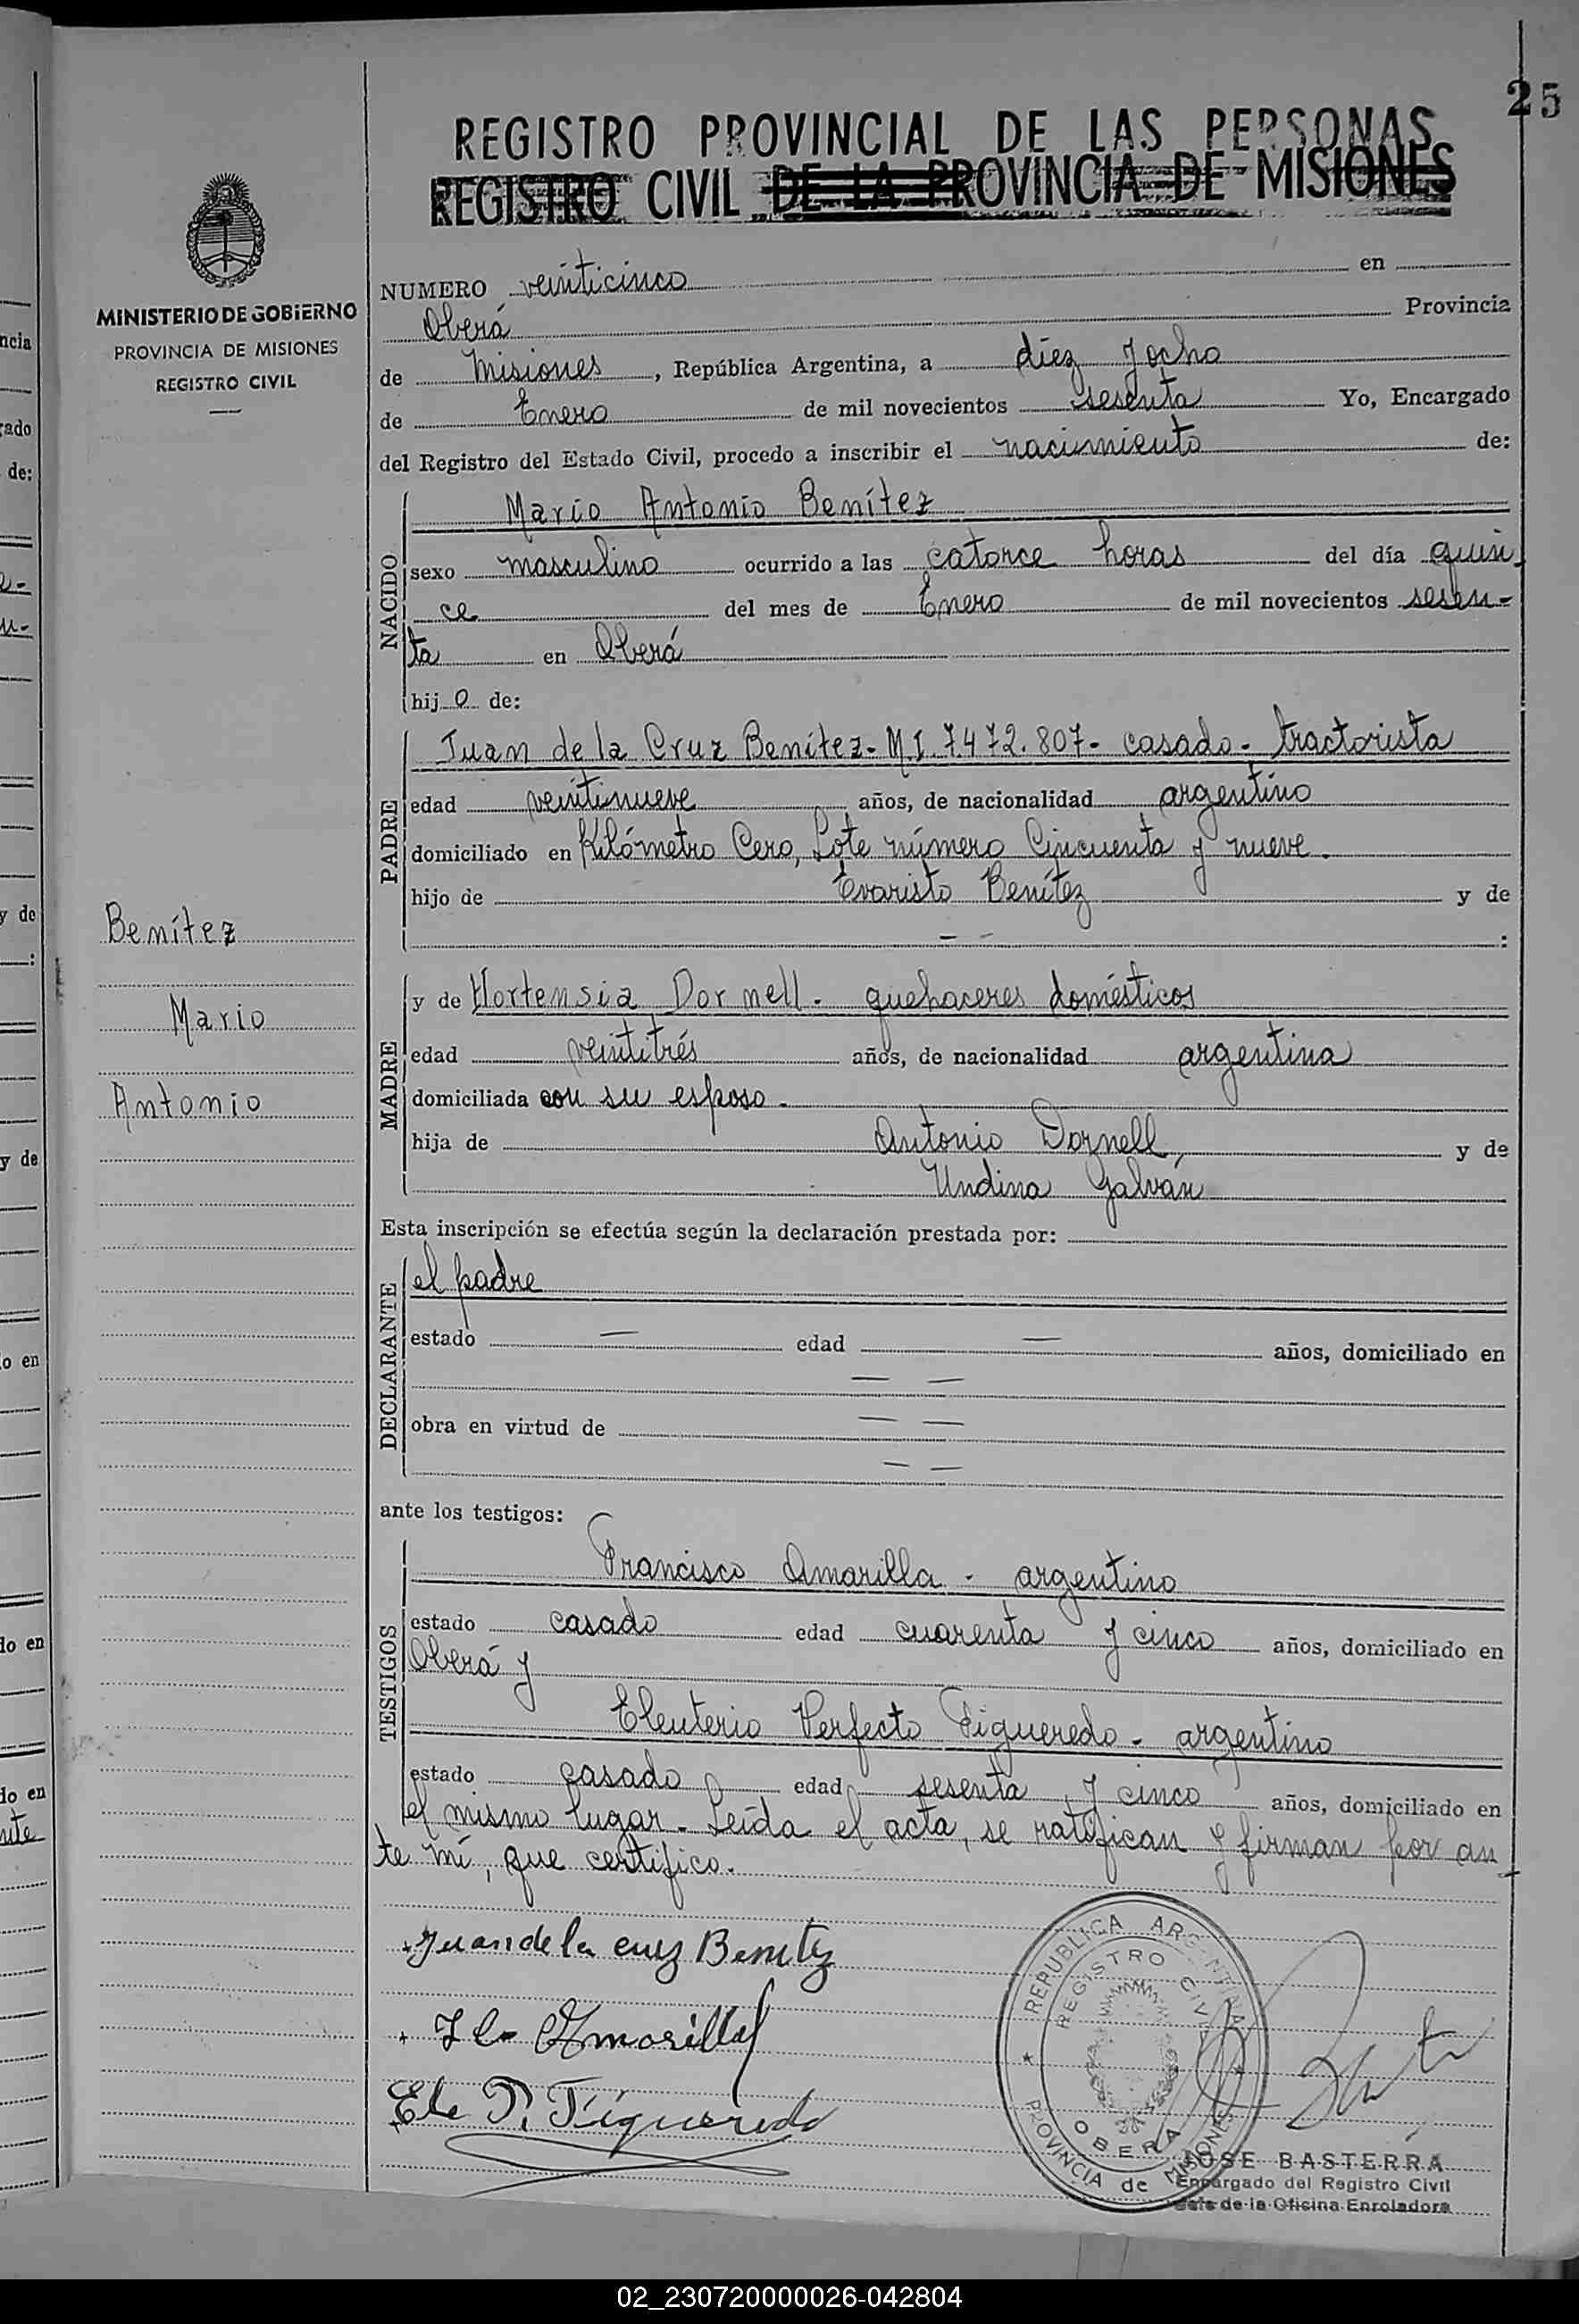 25
REGISTRO PROVINCIAL DE LAS PERSONAS
REGISTRO CIVIL DE LA PROVINCIA DE MISIONES
MINISTERIO DE GOBIERNO
PROVINCIA DE MISIONES
REGISTRO CIVIL
NUMERO veinticinco en
Oberá Provincia
de Misiones, República Argentina, a diez y ocho
de Enero de mil novecientos sesenta Yo, Encargado
del Registro del Estado Civil, procedo a inscribir el nacimiento de:
NACIDO
Mario Antonio Benítez
sexo masculino ocurrido a las catorce horas del día quin-
ce del mes de Enero de mil novecientos sesen-
ta en Oberá
hijo de:
PADRE
Juan de la Cruz Benítez - M.I. 7.472.807 - casado - tractorista
edad veintinueve años, de nacionalidad argentino
domiciliado en Kilómetro Cero, Lote número Cincuenta y nueve.
hijo de Evaristo Benítez y de
— — :
Benítez
Mario
Antonio
MADRE
y de Hortensia Dornell - quehaceres domésticos
edad veintitrés años, de nacionalidad argentina
domiciliada con su esposo -
hija de Antonio Dornell, y de
Undina Galván
Esta inscripción se efectúa según la declaración prestada por:
DECLARANTE
el padre
estado — edad — años, domiciliado en
— —
obra en virtud de — —
— —
ante los testigos:
TESTIGOS
Francisco Amarilla - argentino
estado casado edad cuarenta y cinco años, domiciliado en
Oberá y
Eleuterio Perfecto Figueredo - argentino
estado casado edad sesenta y cinco años, domiciliado en
el mismo lugar - Leída el acta, se ratifican y firman por an-
te mí, que certifico.
Juan de la cruz Benitez
Amarilla
Ele P. Figueredo
REPUBLICA ARGENTINA
REGISTRO CIVIL
OBERA
PROVINCIA de MISIONES
JOSE BASTERRA
Encargado del Registro Civil
Jefe de la Oficina Enroladora
ncia
gado
de:
y de
:
y de
o en
do en
do en
02_230720000026-042804